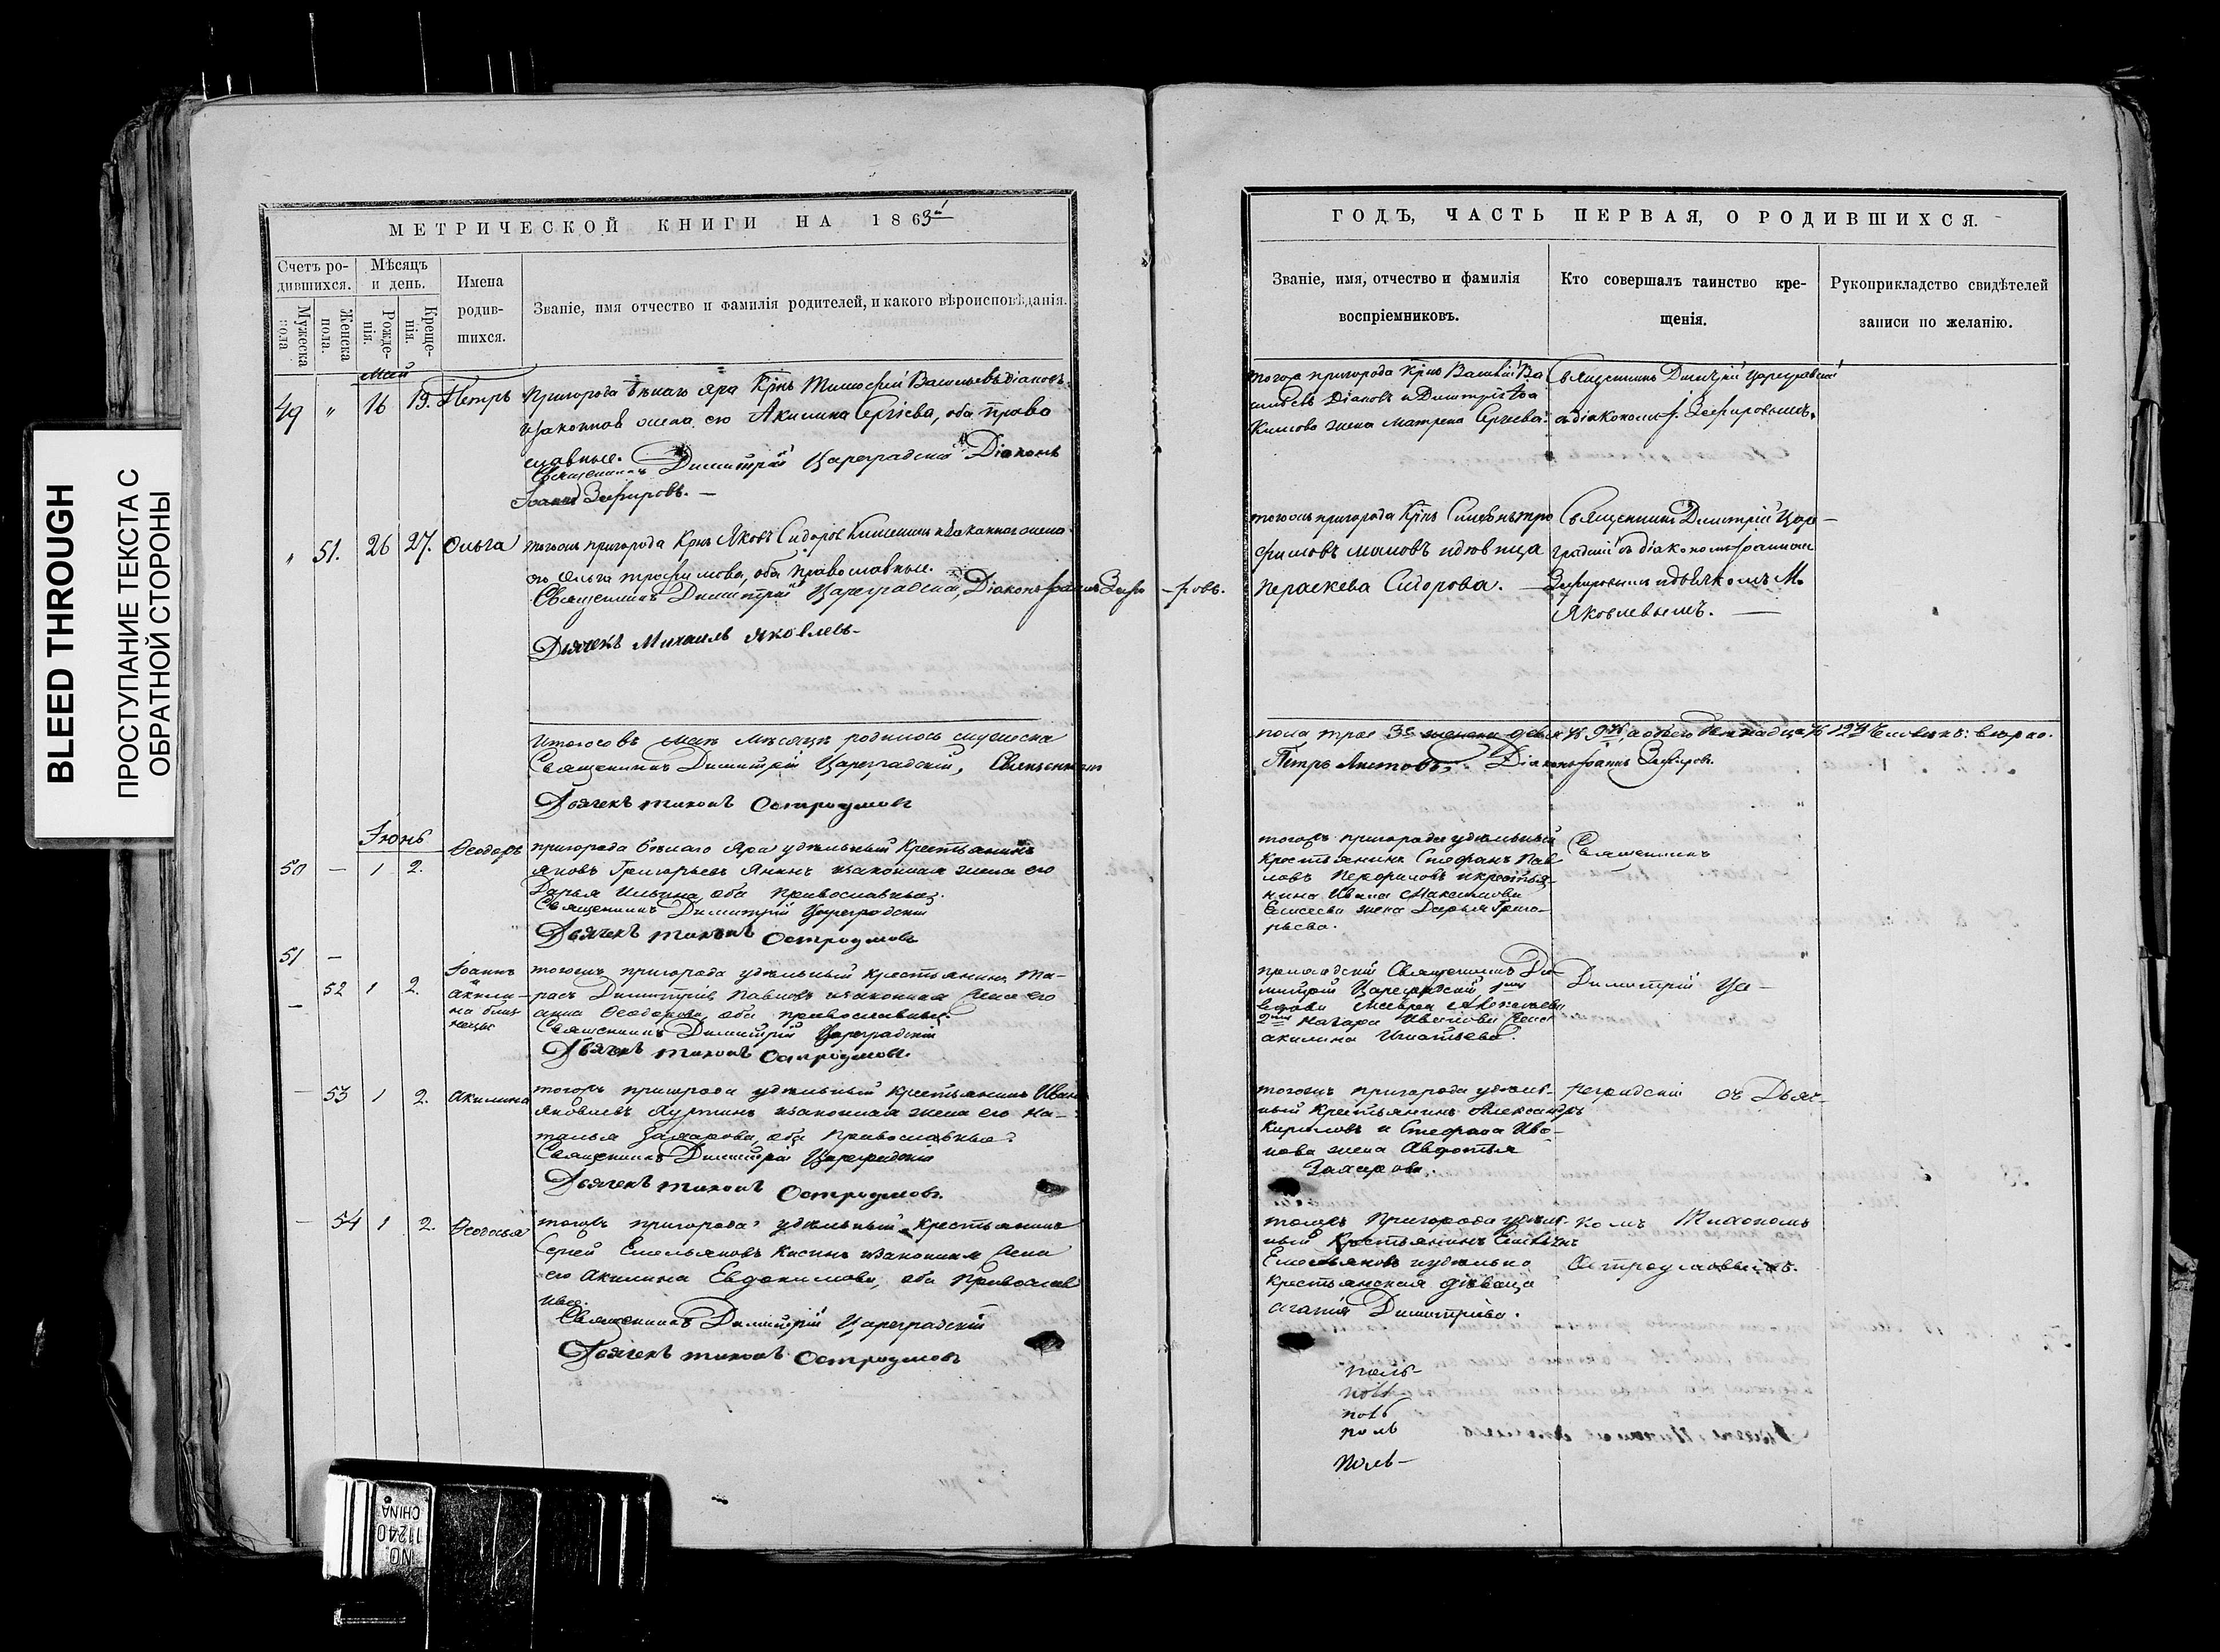 BLEED THROUGH
ПРОСТУПАНИЕ ТЕКСТА С
ОБРАТНОЙ СТОРОНЫ
МЕТРИЧЕСКОЙ КНИГИ НА 1863й
Счетъ ро-
дившихся.
Мѣсяцъ
и день.
Мужеска
пола
Женска
пола.
Рожде-
нія.
Креще-
нія.
Имена
родив-
шихся.
Званіе, имя отчество и фамилія родителей, и какого вѣроисповѣданія.
Май
49 " 16 19. Петръ
Пригорода Бѣлаго Яра Крнъ Тимофей Васильевъ Діановъ
изаконная жена его Акилина Сергіева, оба право
славные.
Священникъ Димитрій Цареградскій Діаконъ
Іоаннъ Зефировъ. —
" 51. 26 27. Ольга
тогожъ пригорода Крнъ Яковъ Сидоровъ изаконная жена
его Ольга трофимова, оба православные.
Священникъ Димитрій Цареградскій, Діаконъ Іоаннъ Зефи-ровъ.
Дьячекъ Михаилъ Яковлевъ.
Итого въ Маѣ мѣсяцѣ родилось мужеска
Священникъ Димитрій Цареградскій, Священникъ
Дьячекъ Тихонъ Остроумовъ
Іюнь
50 — 1 2. Ѳеодоръ
пригорода бѣлаго Яра удѣльный Крестьянинъ
Яковъ Григорьевъ Янинъ изаконная жена его
Дарья Ильина, оба Православные.
Священникъ Димитрій Цареградскій
Дьячекъ Тихонъ Остроумовъ
51 —
— 52 1 2.
Іоаннъ
Акили-
на близ
нецы
тогожъ пригорода удѣльный крестьянинъ Та-
расъ Димитріевъ Павловъ изаконная жена его
анна Ѳеодорова, оба православные.
Священникъ Димитрій Цареградскій
Дьячекъ Тихонъ Остроумовъ.
— 53 1 2. Акилина
тогожъ пригорода удѣльный Крестьянинъ Иванъ
Яковлевъ изаконная жена его На-
талья Захарова, оба Православные.
Священникъ Димитрій Цареградскій
Дьячекъ Тихонъ Остроумовъ.
— 54 1 2. Ѳеодосья
тогожъ пригорода удѣльный Крестьянинъ
Сергей Емельяновъ Касинъ изаконная жена
его Акилина Евдокимова, оба Православ
ные.
Священникъ Димитрій Цареградскій
Дьячекъ Тихонъ Остроумовъ
ГОДЪ, ЧАСТЬ ПЕРВАЯ, О РОДИВШИХСЯ.
Званіе, имя, отчество и фамилія
воспріемниковъ.
Кто совершалъ таинство кре-
щенія.
Рукоприкладство свидѣтелей
записи по желанію.
того же пригорода Крнъ Василій Ва
сильевъ Діановъ и Димитрія
жена Матрена Сергіева.
Священникъ Димитрій Цареградскій
съ діакономъ І. Зефировымъ.
тогожъ пригорода Крнъ Симеонъ тро
фимовъ идѣвица
Пераскева Сидорова. —
Священникъ Димитрій Царе-
градскій съ діакономъ Іоанномъ
Зефировымъ идьячкомъ М.
Яковлевымъ. —
пола трое 3е женска девять 9ть, а обоего двенадцать 12ть человекъ:
Петръ Діаконъ Іоаннъ Зефировъ.
тогожъ пригорода удѣльный
крестьянинъ Стефанъ Пав
ловъ икрестья-
нина Ивана Максимова
Елисеева жена Дарья Григо-
рьева.
Священникъ
приходскій Священникъ Ди
митрій Цареградскій
Назара Иванова жена
акилина Игнатьева.
Димитрій Ца-
тогожъ пригорода удѣль-
ный крестьянинъ Александръ
Кириловъ и Стефана Ива-
нова жена Авдотья
Захарова.
реградскій съ Дьяч-
тогожъ Пригорода удѣль-
ный Крестьянинъ
Емельяновъ иудѣльно
крестьянская дѣвица
Агапія Димитріева.
комъ Тихономъ
Остроумовымъ.
NO.
11240
CHINA